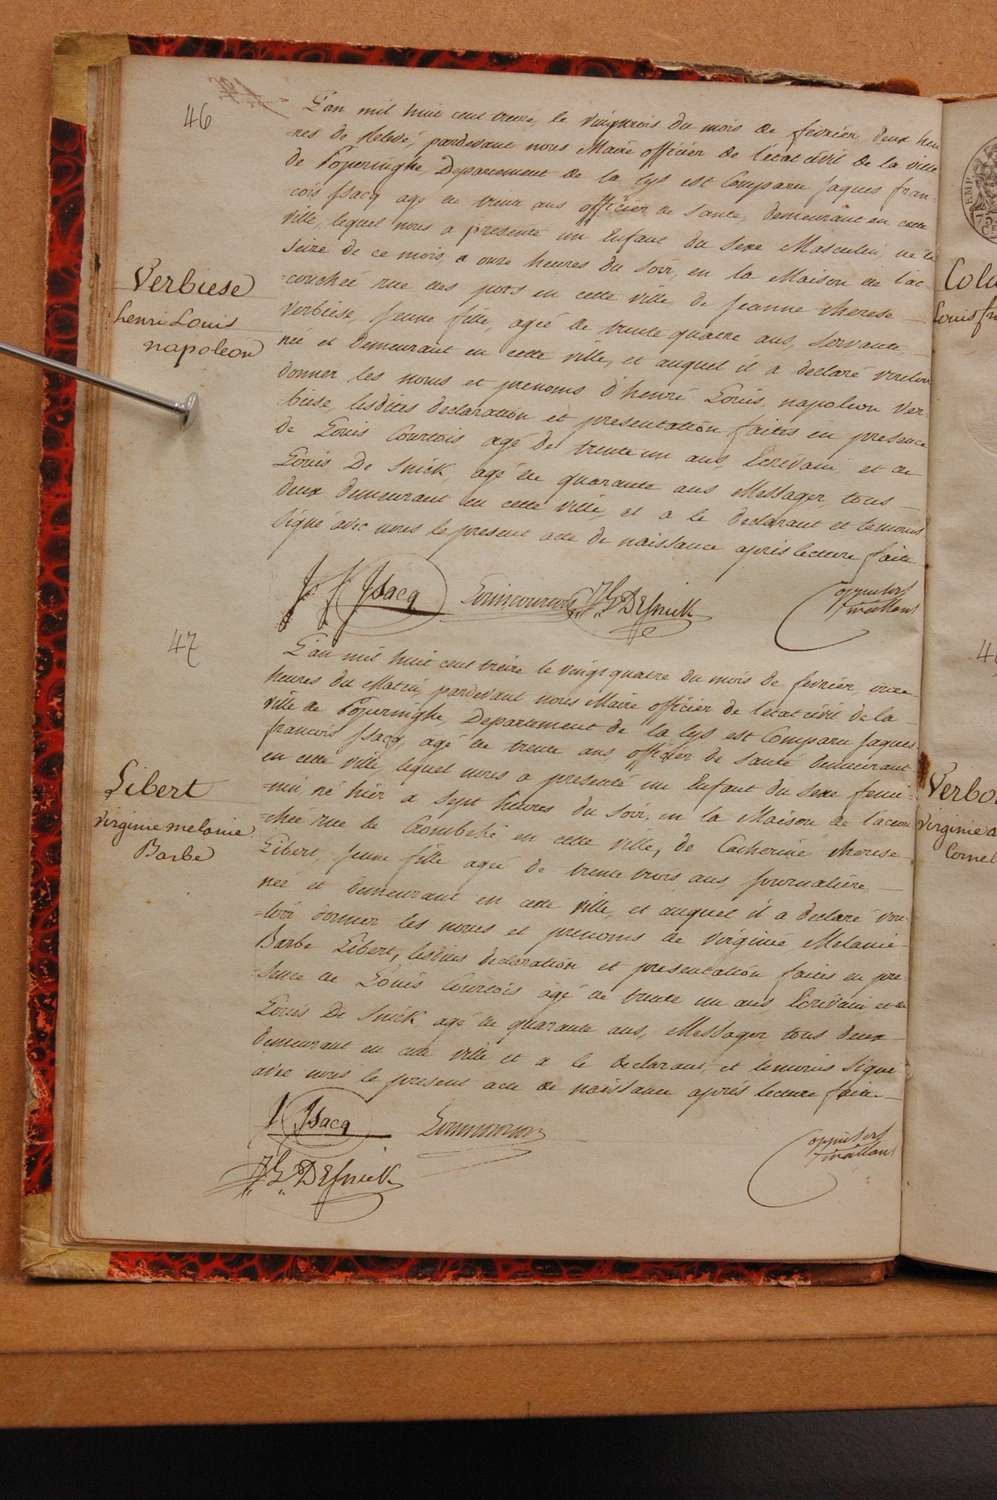 46
L'an mil huit cent treize, le vingttrois du mois de fevrier, deux heu
res de relevé, pardevant nous Maire officier de l'état civil de la ville
de Poperinghe, Departement de la Lys est Comparu Jaques fran-
cois Jsacq agé de trente ans officier de santé, demeurant en cette
ville, lequel nous a presenté un Enfant du sexe Masculin, né le
seize de ce mois, a onze heures du soir, en la Maison de l'ac-
couchée rue des pots en cette ville de Jeanne therese
Verbiese, Jeune fille, agée de trente quatre ans, servante,
née et demeurant en cette ville, et auquel il a declaré vouloir
donner les noms et prenoms d'henri Louis, napoleon Ver
biese, lesdites declaration et presentation faites en presence
de Louis Courtois agé de trente un ans, Ecrivain, et de
Louis De Snick, agé de quarante ans Messager, tous
deux demeurant en cette ville, et a le declarant et temoins
signé avec nous le present acte de naissance après lecture faite
Verbiese
henri Louis
napoleon
Jsacq
DESnick
47
L'an mil huit cent treize le vingt quatre du mois de fevrier, onze
heures du Matin, pardevant nous Maire officier de l'etat civil de la
ville de Poperinghe, Departement de la Lys est Comparu Jaques
francois Jsacq, agé de trente ans, officier de santé demeurant
en cette ville, lequel nous a presenté un Enfant du sexe femi-
nin, né hier a sept heures du soir, en la Maison de l'accou
chée rue de en cette ville, de Catherine therese
Libert, Jeune fille agée de trente trois ans, Journalière
née et demeurant en cette ville, et auquel il a declaré vou
loir donner les noms et prenoms de virginie Melanie
Barbe Libert, lesdites declaration et presentation faites en pre
sence de Louis Courtois agé de trente un ans, Ecrivain et de
Louis De Snick agé de quarante ans, Messager, tous deux
demeurant en cette ville et a le declarant, et temoins signé
avec nous le present acte de naissance après lecture faite
Libert
virginie melanie
Barbe
Jsacq
DESnick
Verbo
virginie
Cornel